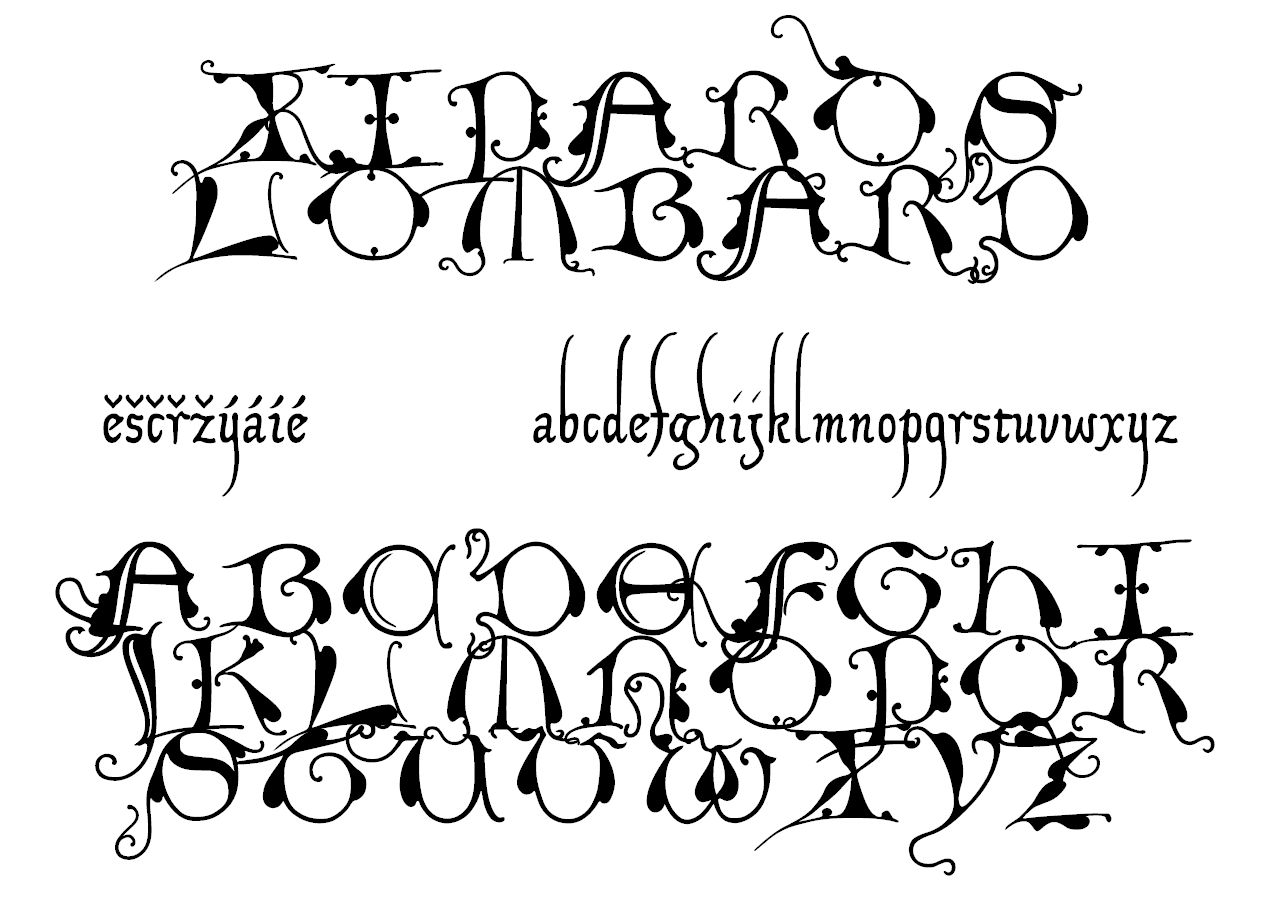 XIPAROS
LOMBARD
ěščřžýáíé abcdefghijklmnopqrstuvwxyz
ABCDEFGHI
JKLMNOPQR
STUVWXYZ